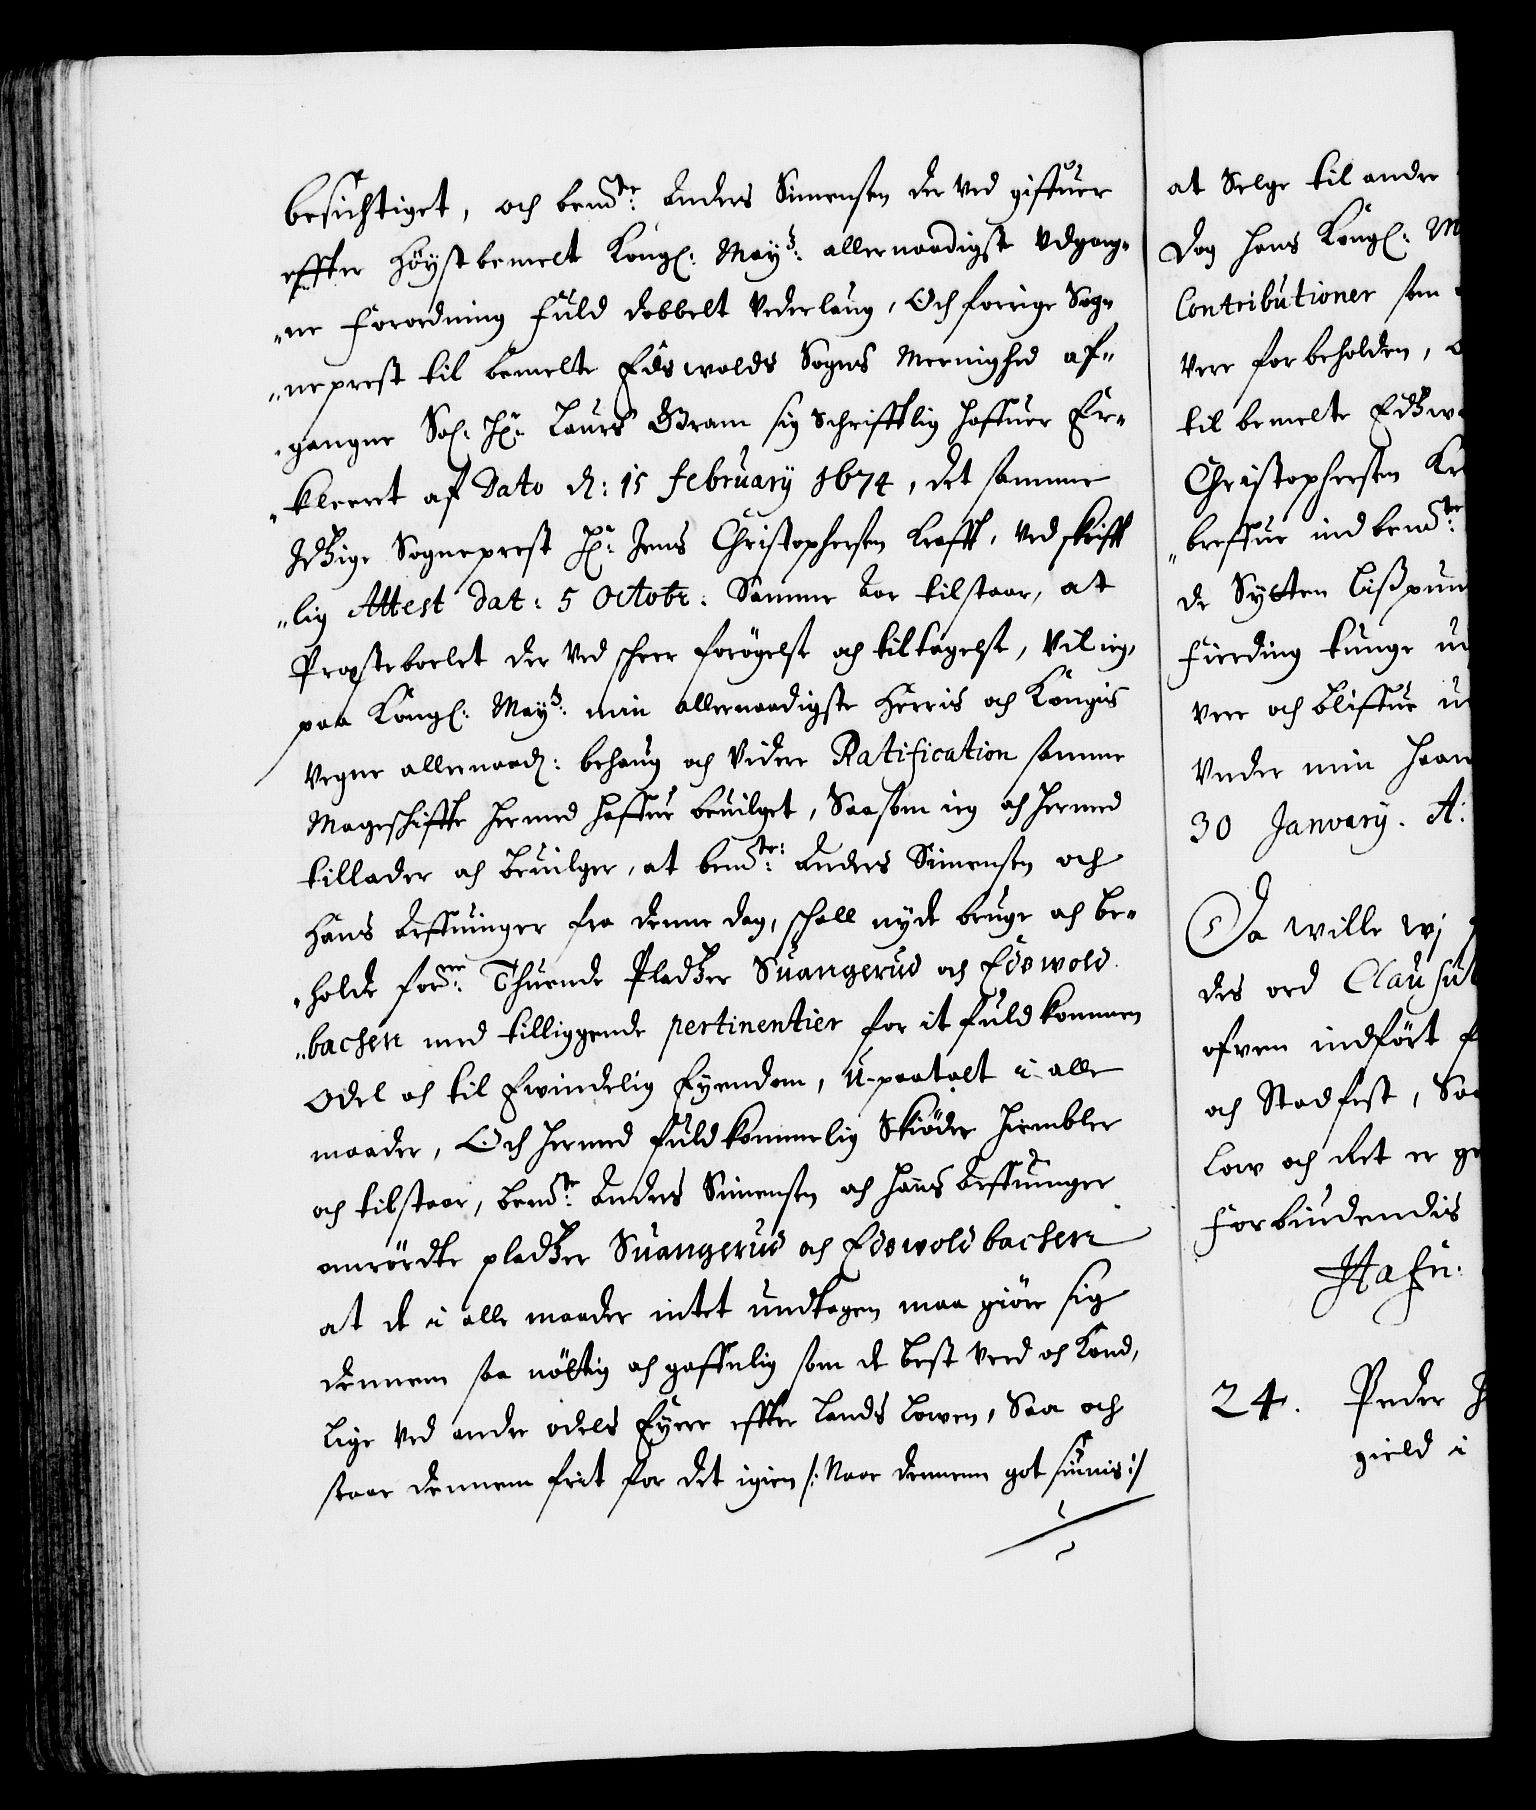 besichtiget, och bemte: Anders Simensen der ved gifuer
effter Höystbemelt Kongl: May:s allernaadigste Udgang„
„ne Forordning fuld dobbelt Vederlaug, Och forrige Sog„
„neprest til bemelte Edswolds Sogns Meenighed af„
„gangne Sal: Hr: Laurs Gram sig schrifftlig hafuer Er„
„kleret af Dato d: 15 february 1674, det samme
Itzige Sogneprest Hr: Jens Christophersen Krafft, ved skrifft
„lig Attest dat: 5 Octobr: Samme Aar tilstaar, at
Prestebolet der ved scheer forögelse och tiltagelse, Vil ieg,
paa Kongl: May:s min allernaadigste Herris och Kongis
Vegne allernaad: behaug och Videre Ratification samme
Mageschiffte hermed hafue beuilget, Saasom ieg och hermed
tillader och beuilger, at bemte: Anders Simensen och
hans Arffuinger fra denne dag, schall nyde bruge och be„
„holde forne: Thuende Pladtzer Suangerud och Edswold
„bachen med tilliggende pertinentier for it fuldkommen
Odel och til Ewindelig Eyendom, U-paatalt i alle
maader, Och hermed fuldkommelig Skiöder hiembler
och tilstaar, bemte Anders Simensen och hans Arffuinger
anrördte pladtzer Suangerud och Edswoldbachen
at de i alle maader intet undtagen maa giöre sig
dennem saa nöttig och gaffnlig som de best veed och Kand,
lige ved andre odels Eyere effter Lands Lowen, Saa och
staar dennem frit for det igien /: Naar dennem got siunis :/
at Selge til andre
Dog hans Kongl: M
Contributioner som
Vere forbeholden,
til bemelte Edtzw
Christophersen Kr
„breffue ind bemte:
de Sytten Lißpun
Fierding tunge
vere och bliffue
Under min Haan
30 January. A:
Da wille wj
des ord Clausul
ofven indfört
och Stadfest, Saa
Low och Ret er
Forbiudendis
Hafn:
24. Peder
gield i